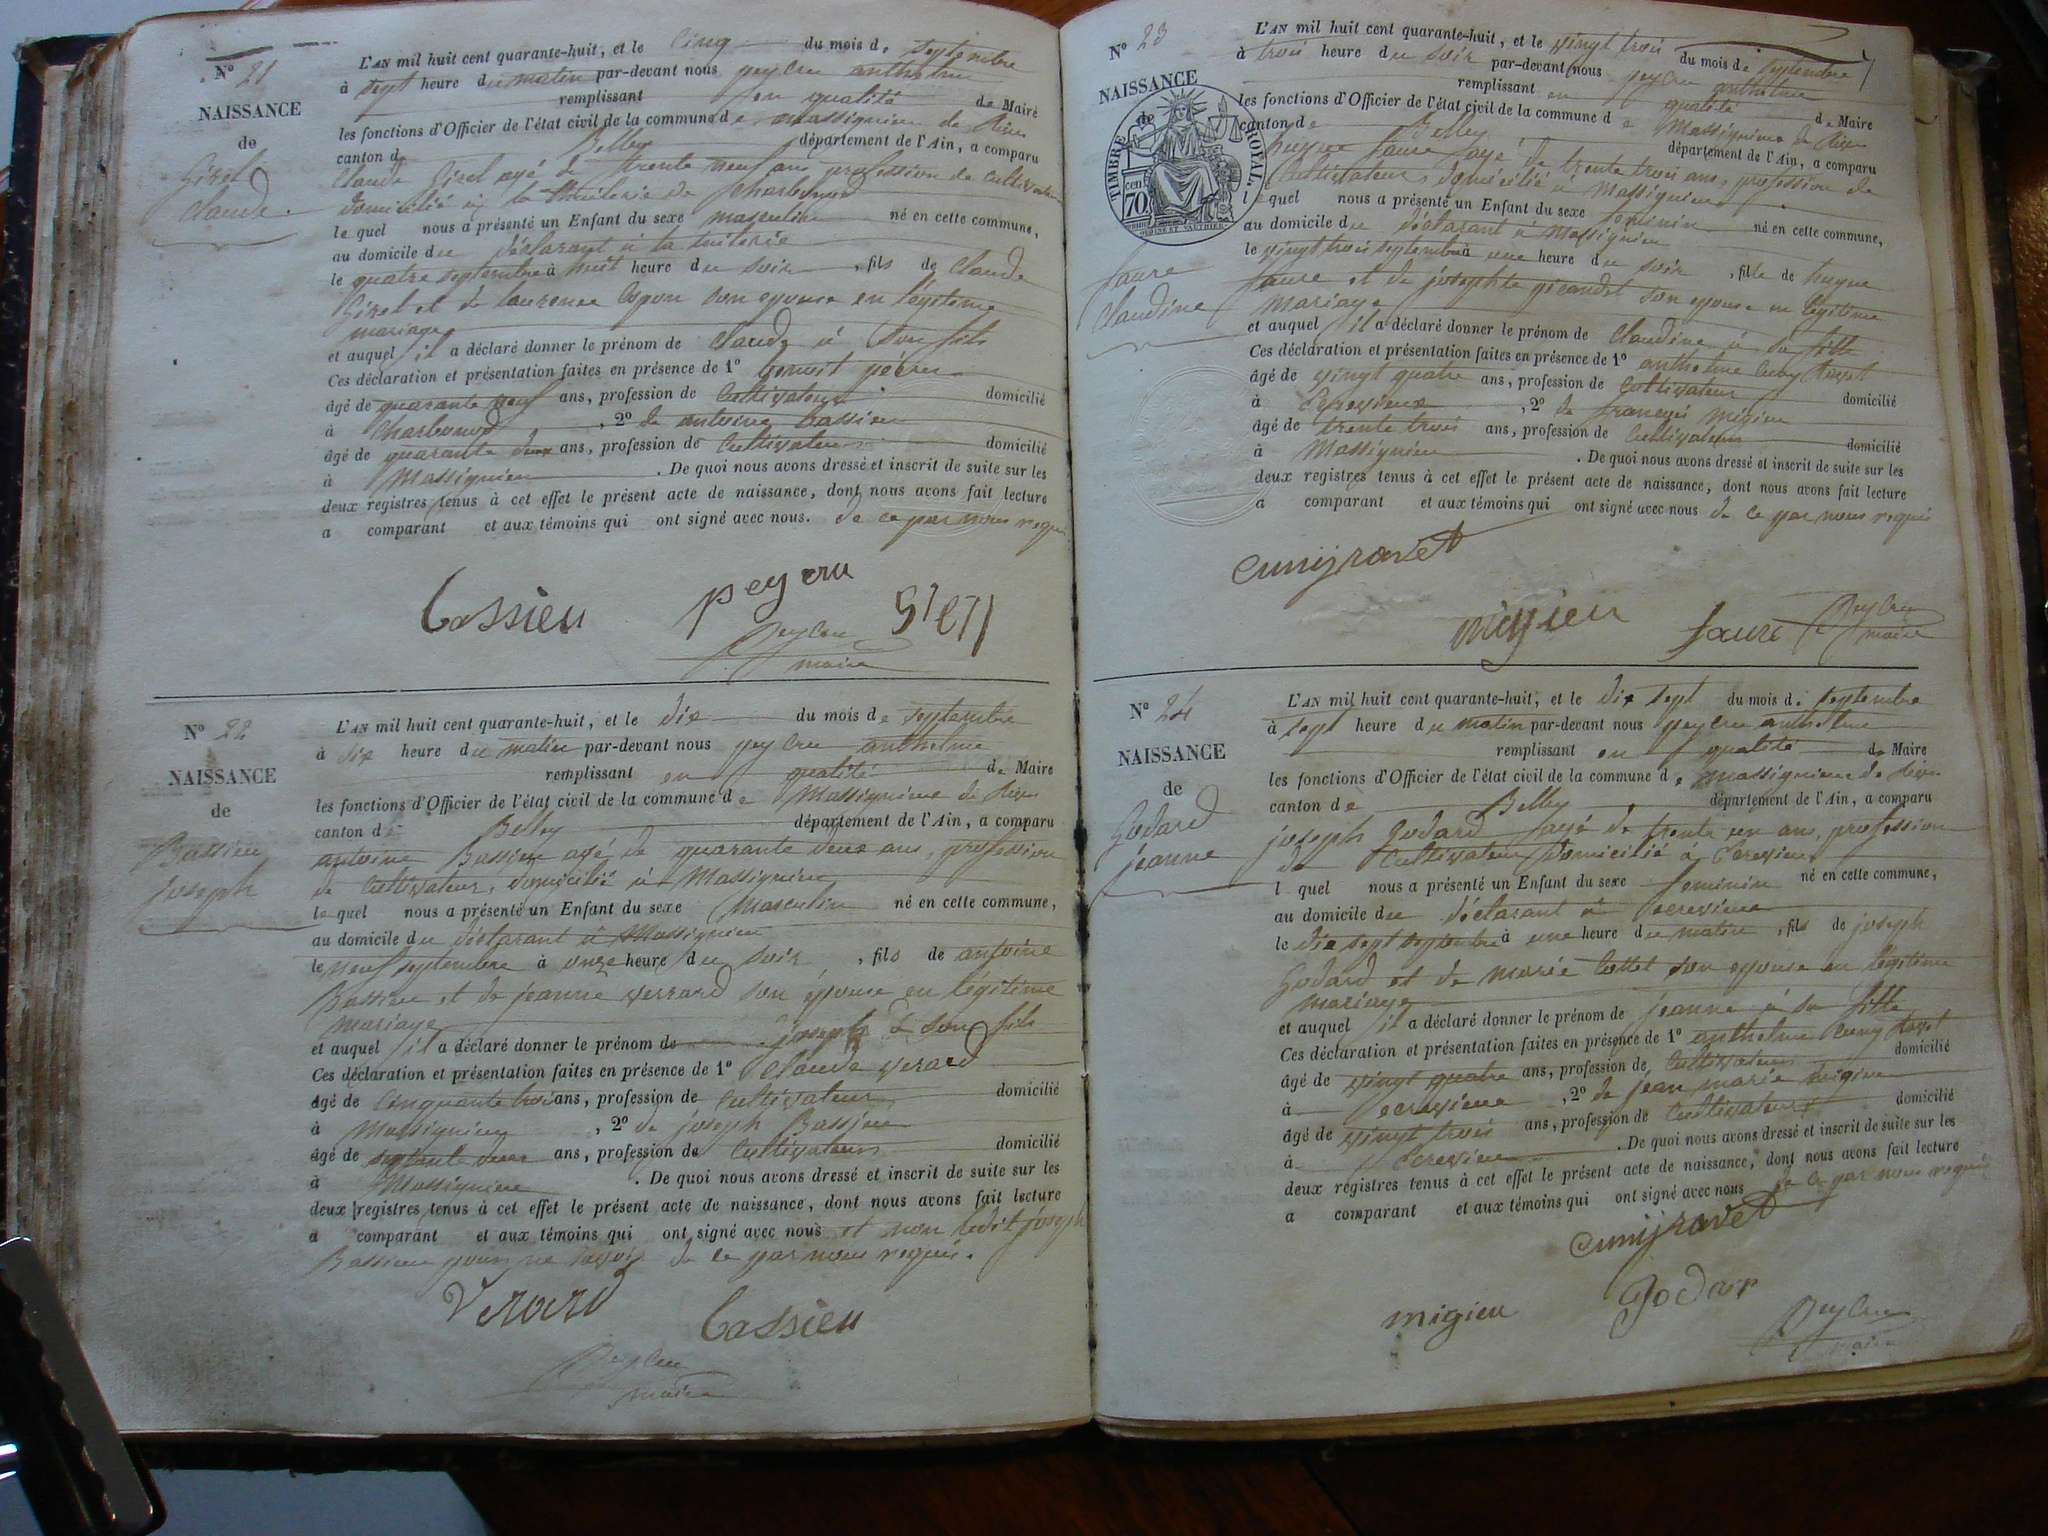 N° 21
NAISSANCE
de
Girel
Claude
L'AN mil huit cent quarante-huit, et le cinq du mois de septembre
à sept heure du matin par-devant nous peycru anthelme
remplissant en qualité de Maire
les fonctions d'Officier de l'état civil de la commune de massignieu de Rives
canton de Belley département de l'Ain, a comparu
Claude Girel agé de trente neuf ans profession de cultivateur
domicilié à la thuilerie de Charbonod
lequel nous a présenté un Enfant du sexe masculin né en cette commune,
au domicile du déclarant à la tuilerie
le quatre septembre à huit heure du soir, fils de Claude
Girel et de laurence son epouse en légitime
mariage
et auquel il a déclaré donner le prénom de Claude à son fils
Ces déclaration et présentation faites en présence de 1° benoit peycru
âgé de quarante neuf ans, profession de Cultivateur domicilié
à Charbonod, 2° de antoine Bassieu
âgé de quarante deux ans, profession de Cultivateur domicilié
à Massignieu. De quoi nous avons dressé et inscrit de suite sur les
deux registres tenus à cet effet le présent acte de naissance, dont nous avons fait lecture
a comparant et aux témoins qui ont signé avec nous. de ce par nous requis
Bassieu peycru
Peycru
maire
N° 22
NAISSANCE
de
Bassieu
Joseph
L'AN mil huit cent quarante-huit, et le dix du mois de septembre
à dix heure du matin par-devant nous peycru anthelme
remplissant en qualité de Maire
les fonctions d'Officier de l'état civil de la commune de Massignieu de Rives
canton de Belley département de l'Ain, a comparu
antoine Bassieu agé de quarante deux ans, profession
de Cultivateur, domicilié à Massignieu
lequel nous a présenté un Enfant du sexe Masculin né en cette commune,
au domicile du déclarant à Massignieu
le neuf septembre à onze heure du soir, fils de antoine
Bassieu et de jeanne verrard son epouse en légitime
mariage
et auquel il a déclaré donner le prénom de joseph à son fils
Ces déclaration et présentation faites en présence de 1° Claude verard
âgé de cinquante trois ans, profession de Cultivateur domicilié
à Massignieu, 2° de joseph Bassieu
âgé de septante deux ans, profession de Cultivateur domicilié
à Massignieu. De quoi nous avons dressé et inscrit de suite sur les
deux registres tenus à cet effet le présent acte de naissance, dont nous avons fait lecture
a comparant et aux témoins qui ont signé avec nous et non ledit joseph
Bassieu pour ne savoir de ce par nous requis.
Verard Bassieu
Peycru
maire
N° 23
NAISSANCE
de
TIMBRE ROYAL
70
cen
Faure
Claudine
L'AN mil huit cent quarante-huit, et le vingt trois du mois de septembre
à trois heure du soir par-devant nous peycru anthelme
remplissant en qualité de Maire
les fonctions d'Officier de l'état civil de la commune de Massignieu de Rives
canton de Belley département de l'Ain, a comparu
hugue faure agé de trente trois ans, profession de
Cultivateur, domicilié à Massignieu
lequel nous a présenté un Enfant du sexe feminin né en cette commune,
au domicile du déclarant à Massignieu
le vingt trois septembre à une heure du soir, fille de hugue
faure et de josephte son epouse en légitime
Mariage
et auquel il a déclaré donner le prénom de Claudine à sa fille
Ces déclaration et présentation faites en présence de 1° anthelme Cuny ravet
âgé de vingt quatre ans, profession de Cultivateur domicilié
à Ecrevieux, 2° de françois Migieu
âgé de trente trois ans, profession de Cultivateur domicilié
à Massignieu. De quoi nous avons dressé et inscrit de suite sur les
deux registres tenus à cet effet le présent acte de naissance, dont nous avons fait lecture
a comparant et aux témoins qui ont signé avec nous de ce par nous requis
cunijravet
migieu faure Peycru
maire
N° 24
NAISSANCE
de
Godard
jeanne
L'AN mil huit cent quarante-huit, et le dix sept du mois de septembre
à sept heure du matin par-devant nous peycru anthelme
remplissant en qualité de Maire
les fonctions d'Officier de l'état civil de la commune de Massignieu de Rives
canton de Belley département de l'Ain, a comparu
joseph Godard agé de trente un ans, profession
de Cultivateur domicilié à Ecrevieu
lquel nous a présenté un Enfant du sexe feminin né en cette commune,
au domicile du déclarant à Ecrevieu
le dix sept septembre à une heure du matin, fils de joseph
Godard et de marie Cottet son epouse en légitime
mariage
et auquel il a déclaré donner le prénom de jeanne à sa fille
Ces déclaration et présentation faites en présence de 1° anthelme Cuny ravet
âgé de vingt quatre ans, profession de Cultivateur domicilié
à Ecrevieu, 2° de jean marie migieu
âgé de vingt trois ans, profession de Cultivateur domicilié
à Ecrevieu. De quoi nous avons dressé et inscrit de suite sur les
deux registres tenus à cet effet le présent acte de naissance, dont nous avons fait lecture
a comparant et aux témoins qui ont signé avec nous de ce par nous requis
cunijravet
migieu Godar
Peycru
maire